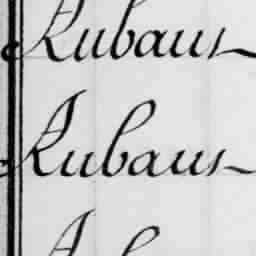 Rubans
Rubans